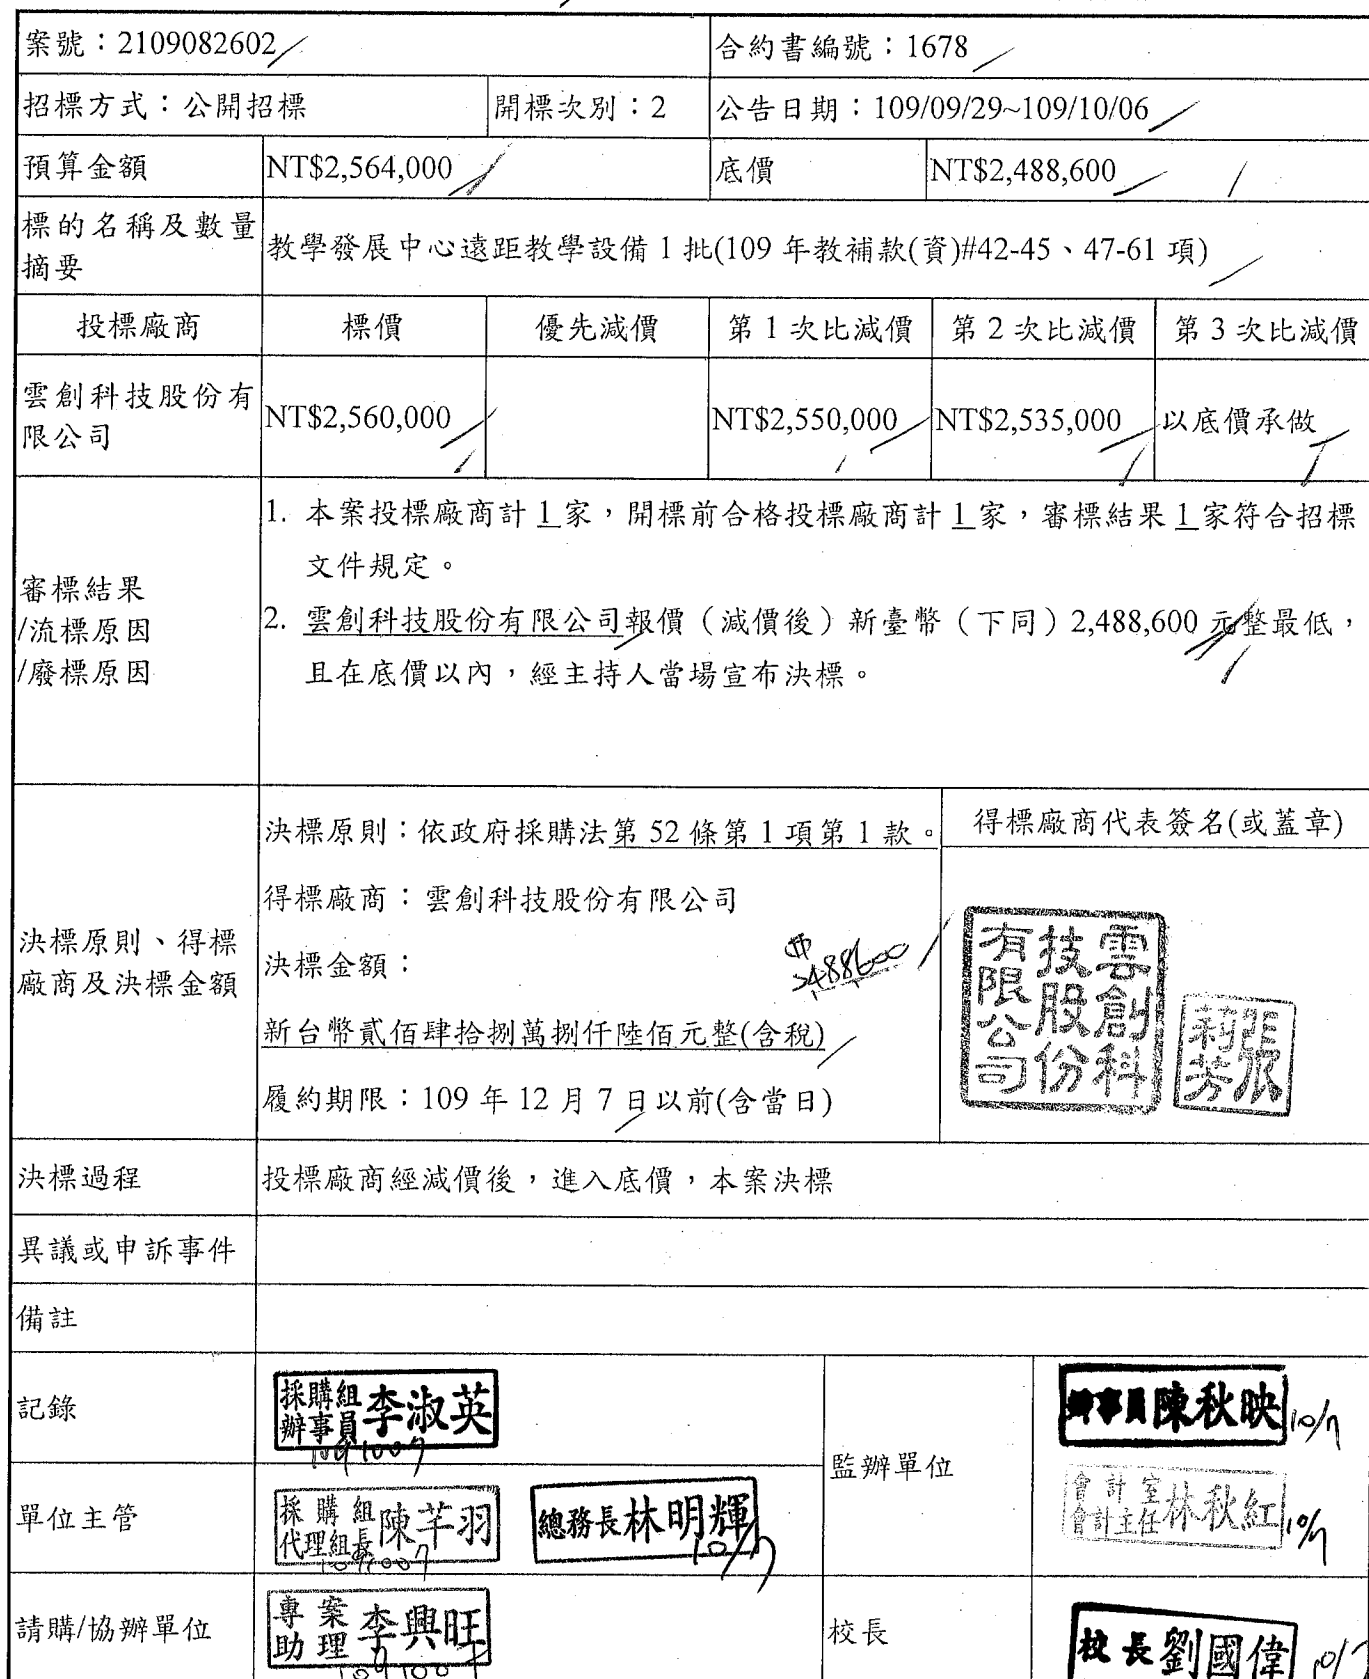 案號：2109082602
合約書編號：1678
招標方式：公開招標
開標次別：2
公告日期：109/09/29~109/10/06
預算金額
NT$2,564,000
底價
NT$2,488,600
標的名稱及數量
摘要
教學發展中心遠距教學設備 1 批(109 年教補款(資)#42-45、47-61 項)
投標廠商
標價
優先減價
第 1 次比減價
第 2 次比減價
第 3 次比減價
雲創科技股份有
限公司
NT$2,560,000
NT$2,550,000
NT$2,535,000
以底價承做
審標結果
/流標原因
/廢標原因
1. 本案投標廠商計 1 家，開標前合格投標廠商計 1 家，審標結果 1 家符合招標
文件規定。
2. 雲創科技股份有限公司報價（減價後）新臺幣（下同）2,488,600 元整最低，
且在底價以內，經主持人當場宣布決標。
決標原則、得標
廠商及決標金額
決標原則：依政府採購法第 52 條第 1 項第 1 款。
得標廠商：雲創科技股份有限公司
決標金額：
2488600
新台幣貳佰肆拾捌萬捌仟陸佰元整(含稅)
履約期限：109 年 12 月 7 日以前(含當日)
得標廠商代表簽名(或蓋章)
雲創科
技股份
有限公司
張
莉芳
決標過程
投標廠商經減價後，進入底價，本案決標
異議或申訴事件
備註
記錄
採購組
辦事員 李淑英
1091007
監辦單位
辦事員陳秋映 10/7
會計室
會計主任 林秋紅 10/7
單位主管
採購組
代理組長 陳芊羽
1091007
總務長林明輝
10/7
請購/協辦單位
專案
助理 李興旺
1091007
校長
校長劉國偉 10/7